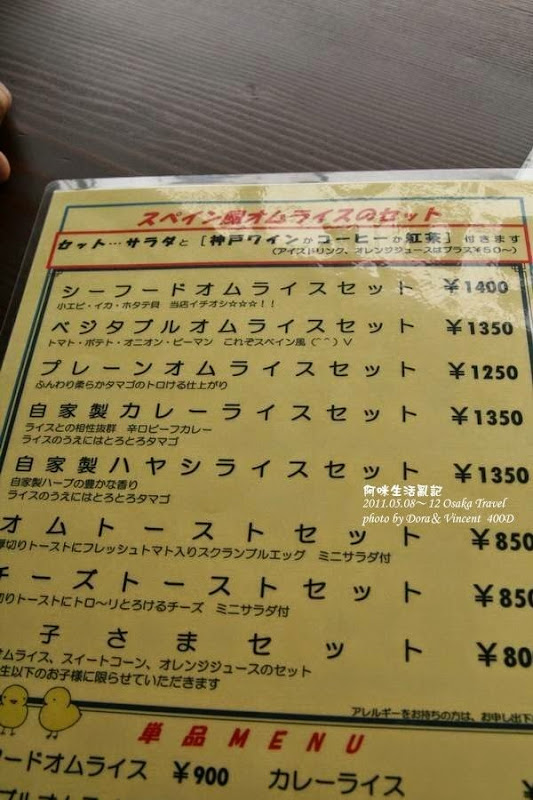 スペイン風オムライスのセット
セット…サラダと [神戸ワインかコーヒーか紅茶] 付きます
(アイスドリンク、オレンジジュースはプラス¥50〜)
シーフードオムライスセット ¥1400
小エビ・イカ・ホタテ貝 当店イチオシ☆☆☆!!
ベジタブルオムライスセット ¥1350
トマト・ポテト・オニオン・ピーマン これぞスペイン風(⌒⌒)V
プレーンオムライスセット ¥1250
ふんわり柔らかタマゴのトロける仕上がり
自家製カレーライスセット ¥1350
ライスとの相性抜群 辛口ビーフカレー
ライスのうえにはとろとろタマゴ
自家製ハヤシライスセット ¥1350
自家製ハーブの豊かな香り
ライスのうえにはとろとろタマゴ
阿咪生活亂記
2011.05.08~12 Osaka Travel
photo by Dora & Vincent 400D
オムトーストセット ¥850
厚切りトーストにフレッシュトマト入りスクランブルエッグ ミニサラダ付
チーズトーストセット ¥850
切りトーストにトロ〜リとろけるチーズ ミニサラダ付
子さまセット ¥80
オムライス、スイートコーン、オレンジジュースのセット
生以下のお子様に限らせていただきます
アレルギーをお持ちの方は、お申し出下
単品MENU
フードオムライス ¥900 カレーライス ¥
ブルオムライス